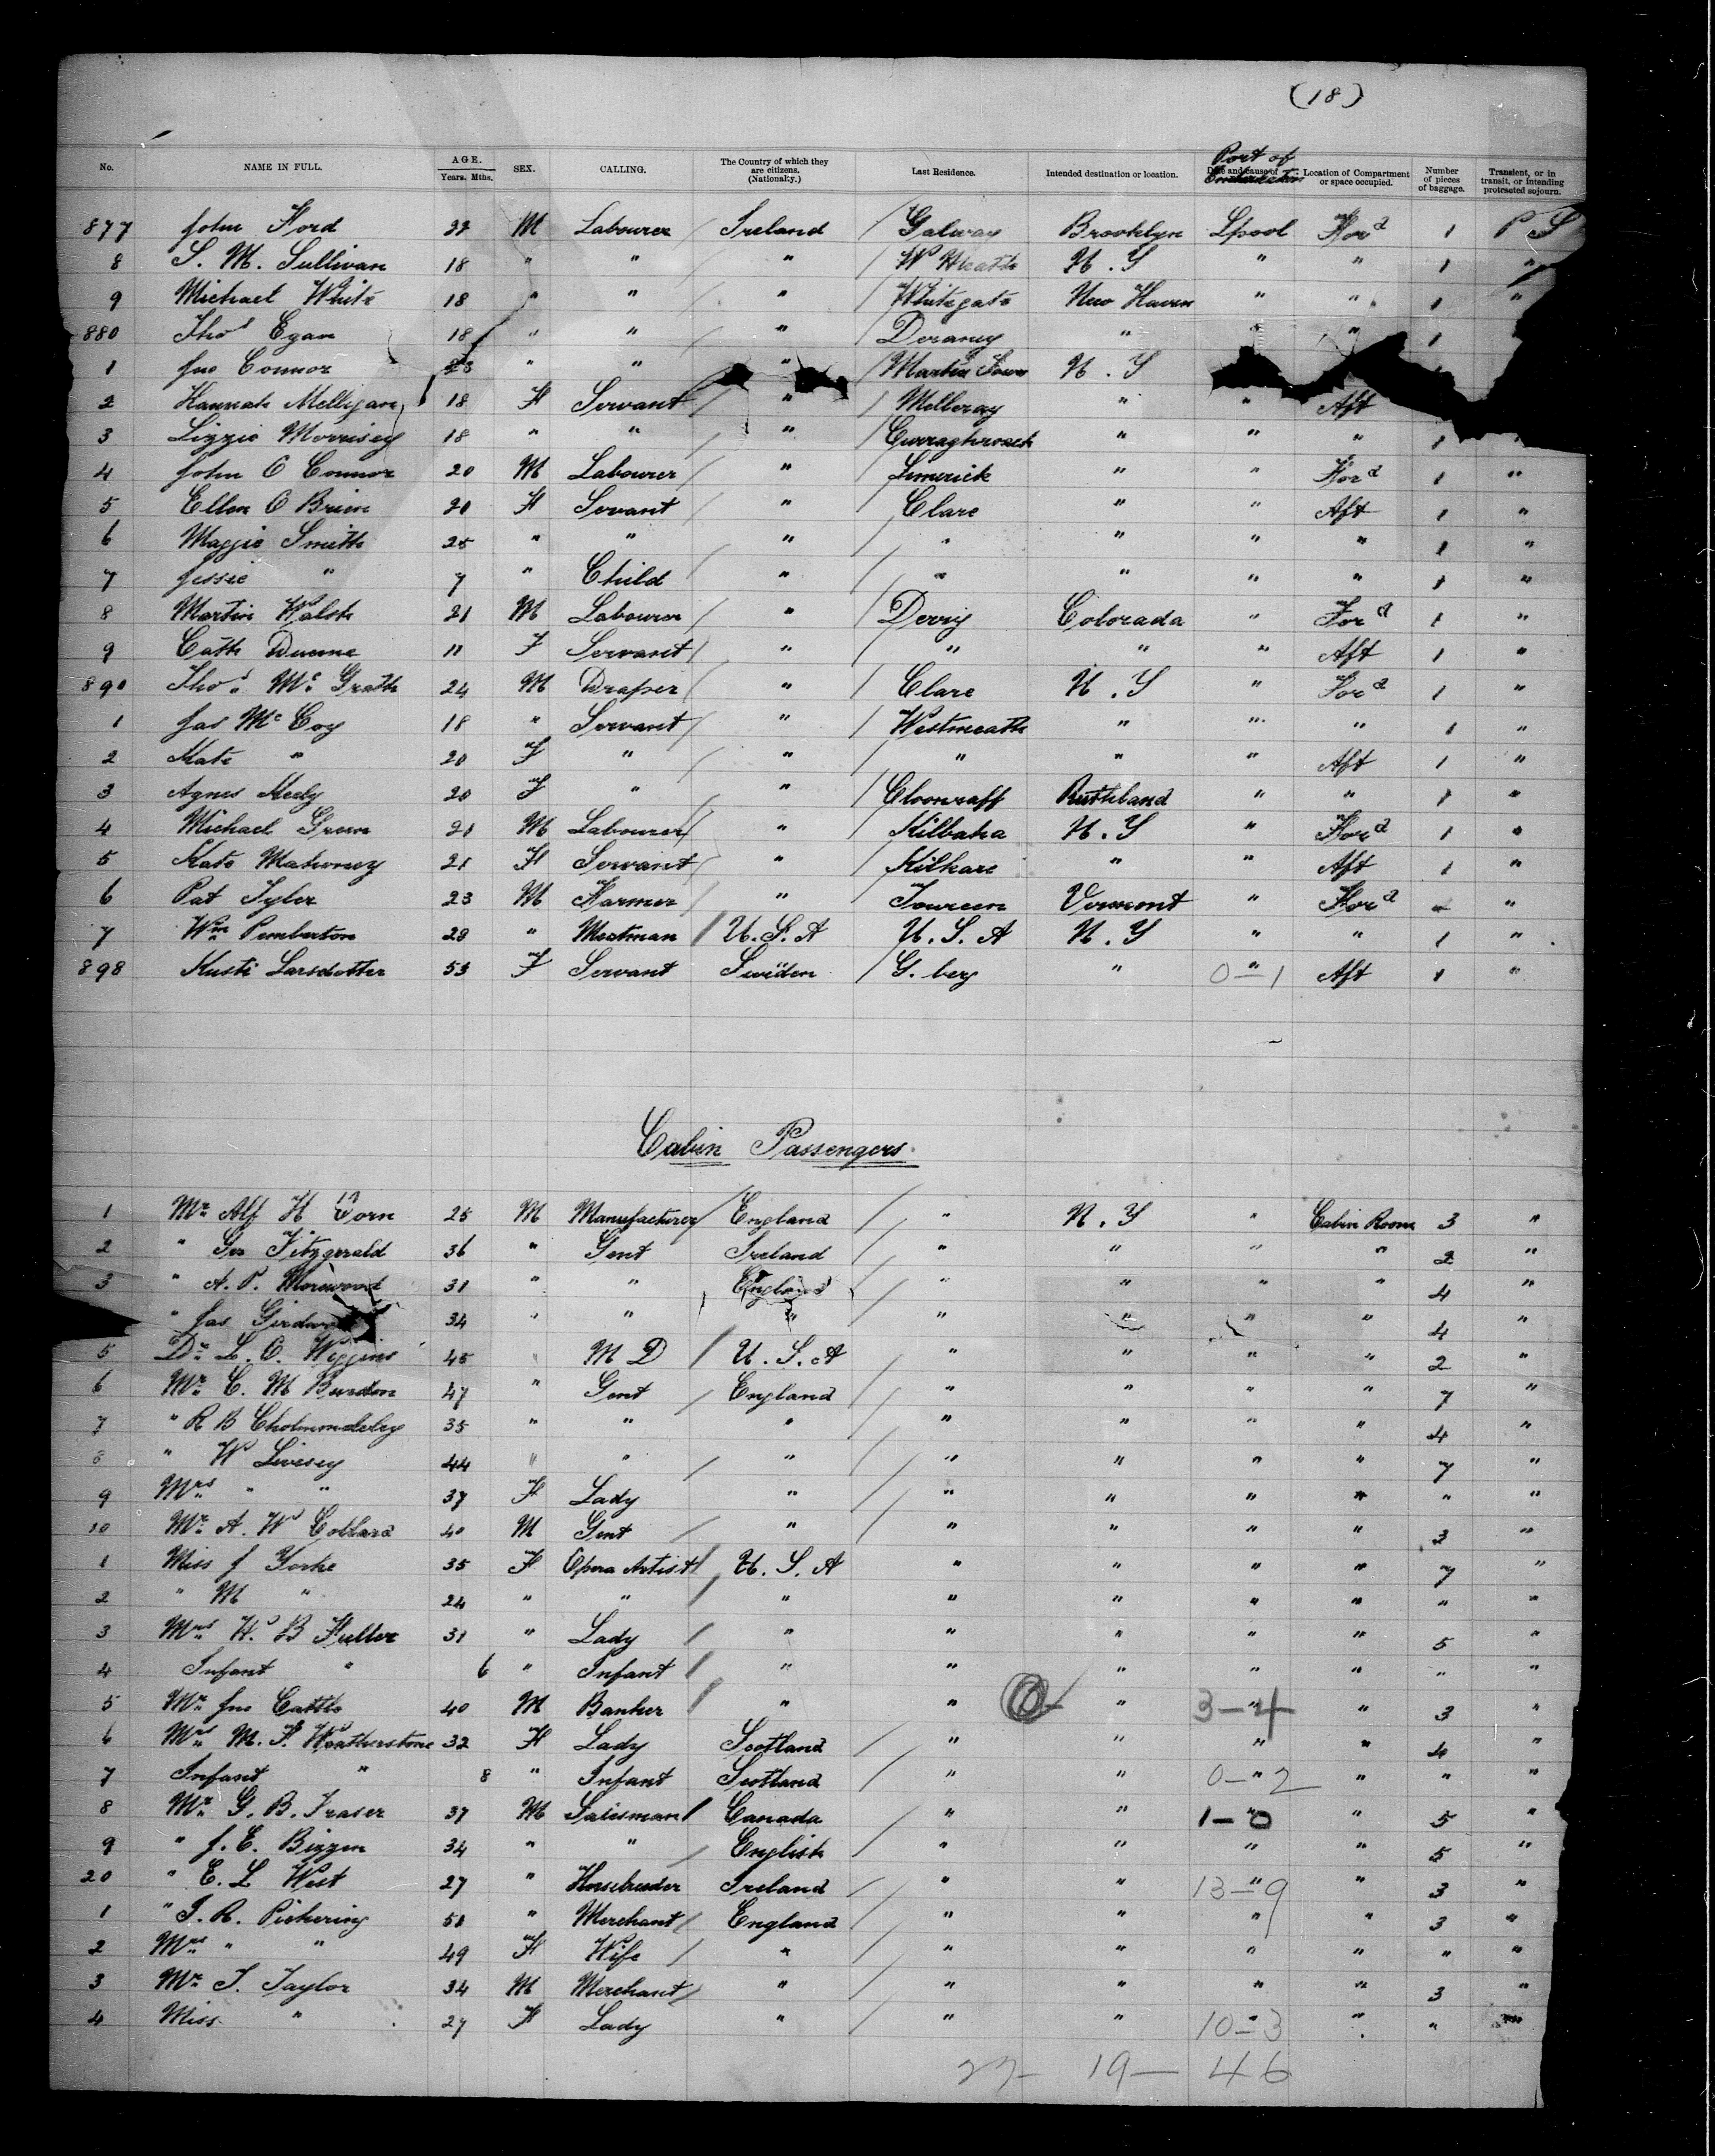 (18)
No. NAME IN FULL. AGE. Years. Mths. SEX. CALLING. The Country of which they are citizens. (Nationality.) Last Residence. Intended destination or location. Port of Location of Compartment or space occupied. Number of pieces of baggage. Transient, or in transit, or intending protracted sojourn.
877 John Ford 22 M Labourer / Ireland / Galway Brooklyn Lpool For'd 1 P S
8 S. M. Sullivan 18 " " " / W Meath N. Y " " 1 "
9 Michael White 18 " " " / Whitegate New Haven " " 1 "
880 Thos Egan 18 " " " / " " " 1
1 Jno Connor 23 " " " / Martin Town N. Y
2 Hannah Melligan 18 F Servant / " / Melleray " " Aft
3 Lizzie Morrisey 18 " " / " / " " " 1
4 John O Connor 20 M Labourer / " / Limerick " " For'd 1 "
5 Ellen O Brien 20 F Servant / " / Clare " " Aft 1 "
6 Maggie Smith 25 " " / " / " " " " 1 "
7 Jessie " 7 " Child / " / " " " " 1 "
8 Martin Walsh 21 M Labourer / " / Derry Colorada " For'd 1 "
9 Cath Dunne 11 F Servant / " / " " " Aft 1 "
890 Thos Mc Grath 24 M Draper / " / Clare N. Y " For'd 1 "
1 Jas Mc Coy 18 " Servant / " / Westmeath " " " 1 "
2 Kate " 20 F " / " / " " " Aft 1 "
3 Agnes Keely 20 F " / " / Cloonraff Ruthland " " 1 "
4 Michael 20 M Labourer / " / Kilbaha N. Y " For'd 1 "
5 Kate Mahoney 21 F Servant / " / Kilkare " " Aft 1 "
6 Pat Tyler 23 M Farmer / " / Toureen Vermont " For'd - "
7 Wm Pemberton 28 " Meatman / U. S. A / U. S. A N. Y " " 1 "
898 Kusti Larsdotter 53 F Servant Swiden / G. berg " " 0-1 Aft 1 "
Cabin Passengers
1 Mr Alf H Corn 25 M Manufacturer / England / " N. Y " Cabin Room 3 "
2 " Geo Fitzgerald 36 " Gent Ireland / " " " " 2 "
3 " A. P. Morewood 31 " " England / " " " " 4 "
" Jas 34 " " " / " " " " 4 "
5 Dr L. O. Wiggins 45 " M D / U. S. A " " " " 2 "
6 Mr C. M Burdon 47 " Gent / England / " " " " 7 "
7 " R B Cholmondeley 35 " " " / " " " " 4 "
8 " W Livesey 44 " " / " / " " " " 7 "
9 Mrs " " 37 F Lady " / " " " " " "
10 Mr A. W Collard 40 M Gent / " / " " " " 3 "
1 Miss J Yorke 35 F Opera Artist / U. S. A " " " " 7 "
2 " M " 24 " " / " " " " " " "
3 Mrs H. B Fuller 31 " Lady / " " " " " 5 "
4 Infant " 6 " Infant / " " " " " " "
5 Mr Jno Cattle 40 M Banker / " " " " 3-4 " 3 "
6 Mrs M. F. Weatherstone 32 F Lady Scotland / " " " " 4 "
7 Infant " 8 " Infant Scotland / " " " 0-2 " " "
8 Mr G. B. Fraser 37 M Salesman / Canada " " " 1-0 " 5 "
9 " J. E. Bizzen 34 " " / English / " " " " 5 "
20 " E. L West 27 " Horsebreeder Ireland / " " " 13-9 " 3 "
1 " J. R. Pickering 51 " Merchant / England / " " " " 3 "
2 Mrs " " 49 F Wife / " / " " " " " "
3 Mr J. Taylor 34 M Merchant / " / " " " " 3 "
4 Miss " 27 F Lady " / " " " 10-3 " " "
27- 19- 46